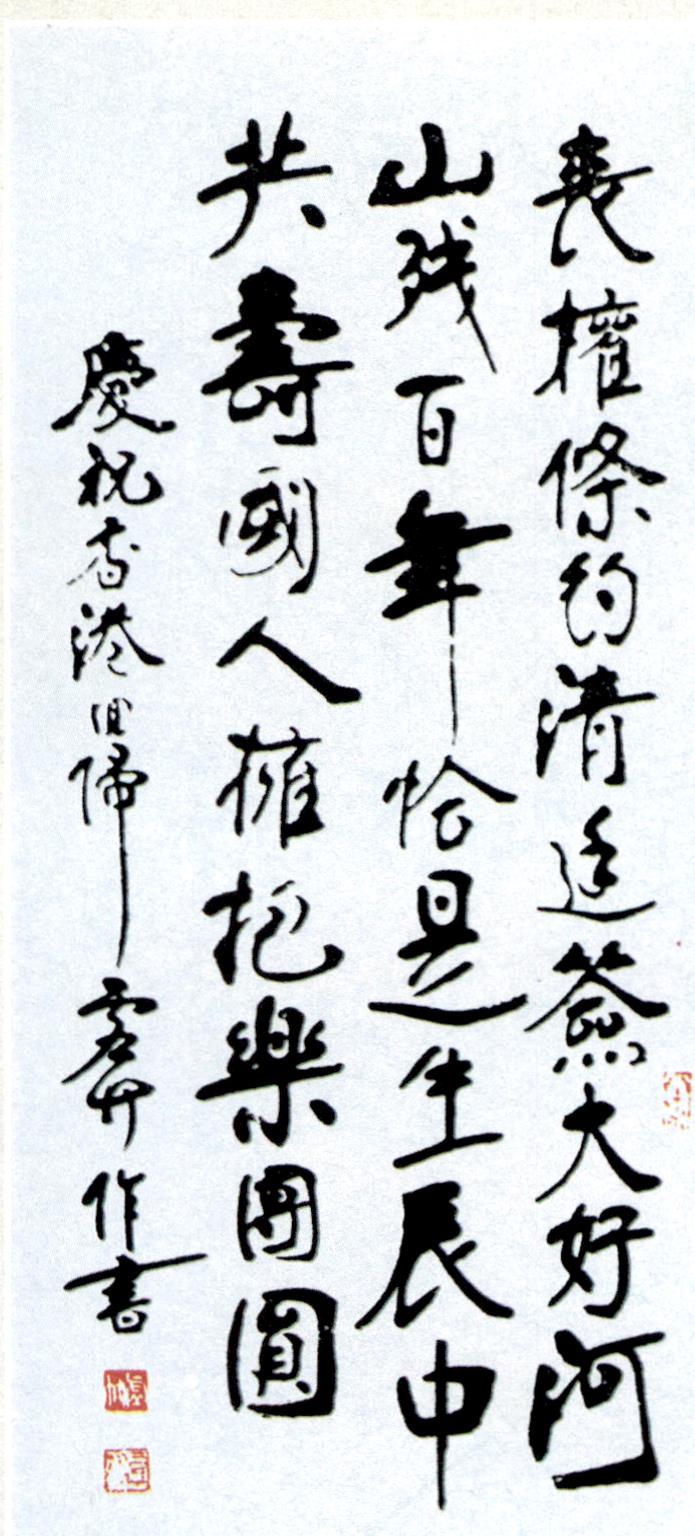 喪權條約清廷簽大好河
山殘百年恰是生辰申
共壽國人擁抱樂團圓
慶祝香港回歸 作書